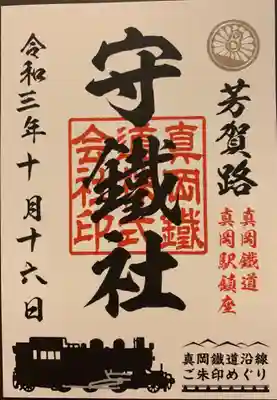 芳賀路
真岡鐵道
真岡駅鎮座
守鐵社
真岡鐵
会社印
令和三年十月十六日
真岡鐵道沿線
ご朱印めぐり